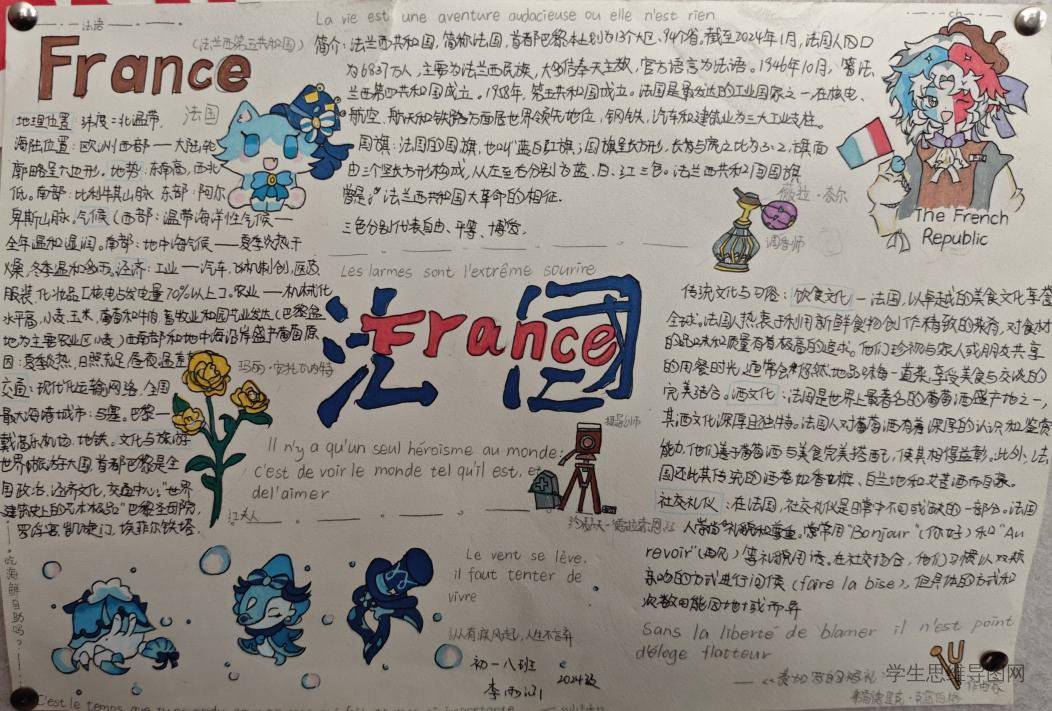 La vie est une aventure audacieuse ou elle n'est rien
法语
France
(法兰西第五共和国)
法国
简介:法兰西共和国,简称法国,首都巴黎本土划为13个大区、94个省,截至2024年1月,法国人口
为6837万人,主要为法兰西民族,大多信奉天主教,官方语言为法语。1946年10月,
兰西第四共和国成立。1958年,第五共和国成立。法国是最发达的工业国家之一,在核电、
航空、航天和铁路方面居世界领先地位,钢铁,汽车和建筑业为三大工业支柱。
国旗:法国的国旗,也叫"蓝白红旗;国旗呈长方形,长与宽之比为3:2,旗面
由三个竖长方形构成,从左至右分别为蓝、白、红三色。法兰西共和国国旗
曾是"法兰西共和国大革命的相征.
三色分别代表自由、平等、博爱.
The French
Republic
薇拉·奈尔
调香师
地理位置 纬度:北温带,
海陆位置:欧洲西部——大陆轮
廓略呈六边形,地势:东南高,西北
低。南部:比利牛斯山脉 东部:阿尔
卑斯山脉,气候(西部:温带海洋性气候——
全年温和湿润。南部:地中海气候——夏季炎热干
燥,冬季温和多雨。经济:工业——汽车,飞机制创,医药
服装,化妆品(核电占发电量70%以上)。农业——机械化
水平高,小麦,玉米,葡萄和牛肉 畜牧业和园艺业发达(巴黎盆
地为主要农业区(小麦)西南部和地中海沿岸盛产葡萄 原
因:夏季炎热、日照充足
交通:现代化运输网络,全国
最大海港城市:马塞。巴黎—
戴高乐机场.地铁。文化与旅游
世界旅游大国,首都巴黎是全
国政治,经济文化,交通中心。"世界
建筑史上的艺术极品"巴黎圣母院,
罗浮宫,凯旋门,埃菲尔铁塔.
Les larmes sont l'extrême sourire
法国
France
红夫人
摄影师
Il n'y a qu'un seul héroïsme au monde:
c'est de voir le monde tel qu'il est, et
del'aimer
传统文化与习俗:饮食文化—法国,以卓越的美食文化享誉
全球。法国人热衷于利用新鲜食物创作精致的菜肴,对食材
的品味和质量有着极高的追求。他们珍视与家人或朋友共享
的用餐时光,通常会
完美结合。酒文化:法国是世界上最著名的葡萄酒盛产地之一,
其酒文化深厚且独特。法国人对葡萄酒有着深厚的认识和鉴赏
能力,他们善于葡萄酒与美食完美搭配,使其相得益彰。此外,法
国还比其传统的酒香如香槟、白兰地和艾酒而自豪。
社交礼仪:在法国,社交礼仪是日常中不可或缺的一部分。法国
人 常常用"Bonjour"(你好)和"Au
revoir"(再见)等礼貌用语。在社交场合,他们习惯以双颊
亲吻的方式进行问候(faire la bise),但具体的方式和
次数可能因地域而异
Le vent se lève,
il faut tenter de
vivre
纵有疾风起,人生不言弃
初一八班
李雨涵 2024级
Sans la liberté de blamer il n'est point
d'éloge flatteur
——《费加罗的婚礼》
作曲家
吃海鲜自助吗?
学生思维导图网